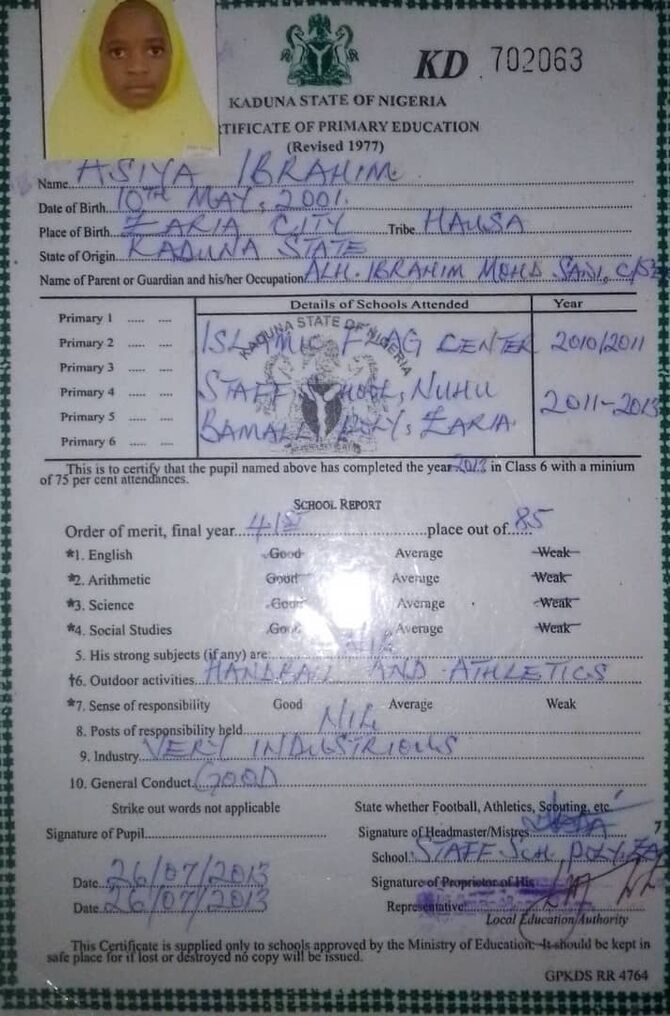 KD 702063
KADUNA STATE OF NIGERIA
TIFICATE OF PRIMARY EDUCATION
(Revised 1977)
Name ASIYA IBRAHIM
Date of Birth 10TH MAY, 2001
Place of Birth ZARIA CITY Tribe HAUSA
State of Origin KADUNA STATE
Name of Parent or Guardian and his/her Occupation ALH. IBRAHIM MOHD SANI,
Details of Schools Attended Year
KADUNA STATE OF NIGERIA
Primary 1
Primary 2 ISLAMIC FLAG CENTER 2010/2011
Primary 3
Primary 4 STAFF SCHOOL, NUHU 2011-2013
Primary 5 BAMALLI POLY, ZARIA
Primary 6
This is to certify that the pupil named above has completed the year 2013 in Class 6 with a minium
of 75 per cent attendances.
SCHOOL REPORT
Order of merit, final year 41ST place out of 85
*1. English Good Average Weak
*2. Arithmetic Good Average Weak
*3. Science Good Average Weak
*4. Social Studies Good Average Weak
5. His strong subjects (if any) are NIL
†6. Outdoor activities HANDBALL AND ATHLETICS
*7. Sense of responsibility Good Average Weak
8. Posts of responsibility held NIL
9. Industry VERY INDUSTRIOUS
10. General Conduct GOOD
Strike out words not applicable State whether Football, Athletics, Scouting, etc.
Signature of Pupil Signature of Headmaster/Mistres
School STAFF SCH. POLY, ZA
Date 26/07/2013 Signature of Proprietor of His
Date 26/07/2013 Representative
Local Education Authority
This Certificate is supplied only to schools approved by the Ministry of Education. It should be kept in
safe place for if lost or destroyed no copy will be issued.
GPKDS RR 4764